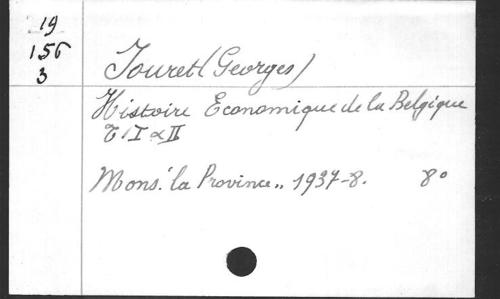 19
156
3
Jouret (Georges)
Histoire Economique de la Belgique
T. I & II
Mons. "la Province„ 1937-8. 8°